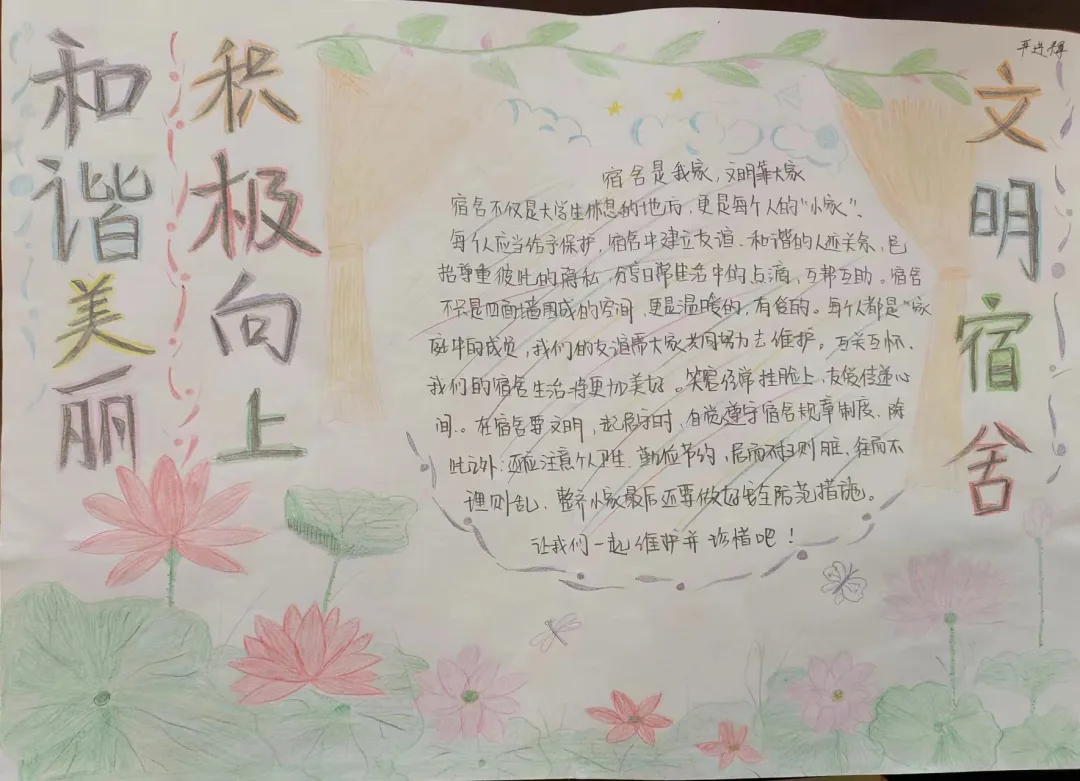 文明宿舍
积极向上
和谐美丽
宿舍是我家，文明靠大家
宿舍不仅是大学生休息的地方，更是每个人的“小家”、
每个人应当给予保护，宿舍中建立友谊、和谐的人际关系、包
括尊重彼此的隐私，分享日常生活中的点滴，互帮互助。宿舍
不只是四面墙围成的空间，更是温暖的，有爱的。每个人都是“家
庭中的成员，我们的友谊需大家共同努力去维护。互关互怀、
我们的宿舍生活将更加美好。笑容经常挂脸上，友爱传递心
间.。在宿舍要文明，起居守时，自觉遵守宿舍规章制度、除
此之外：还应注意个人卫生、勤俭节约，居而不扫则脏，往而不
理则乱、整齐小家最后还要做好安全防范措施。
让我们一起维护并珍惜吧！